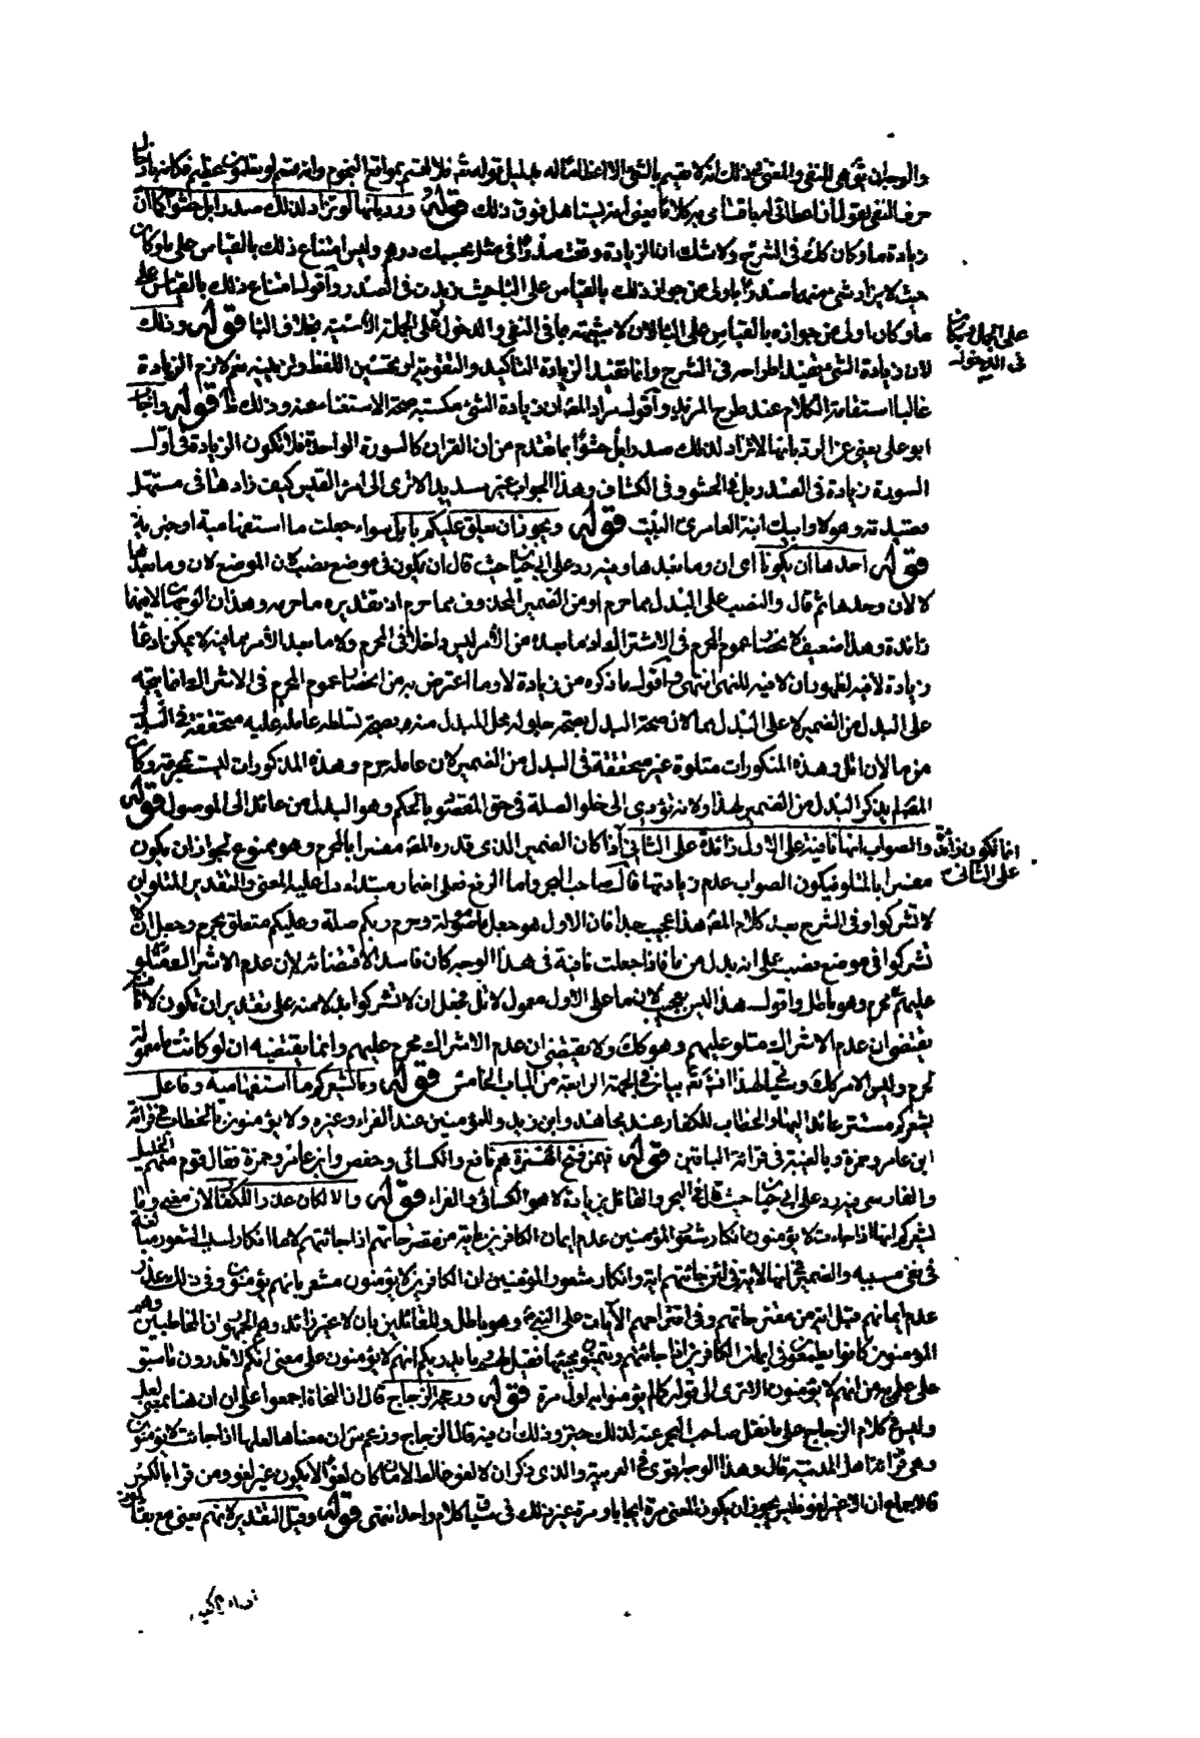 والوجهان هي للنفي والمعنى في ذلك انه لا يقسم بالشي الا اعظاما له بدليل قوله تع فلا اقسم بمواقع النجوم وانه لقسم لو تعلمون عظيم فكانه بادخال
حرف النفي يقول ان اعظامي له باقسامي به كلا اعظام يعني انه يستاهل فوق ذلك قوله ورد بانها لا تزاد لذلك صدرا بل حشوا كما ان
زيادة ما وكان كذلك في الشرح ولا شك ان الزيادة وقعت صدرا في مثل بحسبك درهم وليس امتناع ذلك بالقياس على ما وكان
حيث لا يزاد شي منهما صدرا باولى من جواز ذلك بالقياس على البا حيث زيدت في الصدر واقول امتناع ذلك بالقياس على
ما وكان اولى من جوازه بالقياس على البا لان لا شبيهة بما في النفي والدخول على الجملة الاسمية بخلاف البا قوله وذلك
على الجمل
في الدخول
لان زيادة الشي تفيد اطراحه في الشرح وانما تفيد الزيادة التاكيد والتقوية او تحسين اللفظ ولزم لازم الزيادة
غالبا استقامة الكلام عند طرح المزيد واقول مراد المص ان زيادة الشي مكسبة صحة الاستغناء عنه وذلك ظ قوله واجاب
ابو علي يعني عن الرد بانها لا تزاد لذلك صدرا بل حشوا بما تقدم من ان القران كالسورة الواحدة فلا تكون الزيادة في اول
السورة زيادة في الصدر بل في الحشو وفي الكشاف وهذا الجواب غير سديد الا ترى الى امرئ القيس كيف زادها في مستهل
قصيدته وهو لا وابيك ابنة العامري البيت قوله ويجوز ان يعلق عليكم باتل سواء جعلت ما استفهامية او خبرية
قوله احدها ان يكونا اي ان وما بعدها وفيه رد على ابي حيان حيث قال ان يكون في موضع نصب لان الموضع لان وما بعدها
لا لان وحدها ثم قال والنصب على البدل مما حرم او من الضمير المحذوف مما حرم اذ تقديره ما حرمه وهذان الوجهان لا فيهما
زائدة وهذا ضعيف لانحصار عموم المحرم في الاشراك اذ ما بعده من الامر ليس داخلا في المحرم ولا ما بعد الامر مما فيه لا يمكن ادعاء
زيادة لا فيه لظهور ان لا فيه للنهي انتهى واقول ما ذكره من زيادة لا وما اعترض به من انحصار عموم المحرم في الاشراك انما يتجه
على البدل من الضمير لا على البدل مما لان صحة البدل بصحة حلوله محل المبدل منه وبصحة تسلط عامله عليه متحققة في البدل
من ما لان اتل وهذه المذكورات متلوة غير متحققة في البدل من الضمير لان عامله حرم وهذه المذكورات ليست محرمة وكان
المص لم يذكر البدل من الضمير لهذا ولانه يؤدي الى خلو الصلة في حق المقصود بالحكم وهو البدل من عائد الى الموصول قوله
والصواب انها نافية على الاول زائدة على الثاني اذا كان الضمير الذي قدره المص مفسرا بالمحرم وهو ممنوع لجواز ان يكون
انما تكون زائدة
على الثاني
مفسرا بالمتلو فيكون الصواب عدم زيادتها قال صاحب البحر واما الرفع فعلى اضمار مبتداء دل عليه المعنى والتقدير المتلو ان
لا تشركوا وفي الشرح بعد كلام المص هذا عجيب جدا فان الاول هو جعل ما موصولة وحرم ربكم صلة وعليكم متعلق بحرم وجعل ان لا
تشركوا في موضع نصب على انه بدل من ما فاذا جعلت نافية في هذا الوجه كان فاسدا لاقتضائه لان عدم الاشراك المتلو
عليهم محرم وهو باطل واقول هذا ليس بعجب لان ما على الاول معمول لاتل فجعل ان لا تشركوا بدلا منه على تقدير ان تكون لا نافية
يقتضي ان عدم الاشراك متلو عليهم وهو كذلك ولا يقتضي ان عدم الاشراك محرم عليهم وانما يقتضيه ان لو كانت ما معمولة
لحرم وليس الامر كذلك وسيجي لهذا ان شاء الله تع بيان في الجهة الرابعة من الباب الخامس قوله وما يشعركم ما استفهامية وفاعل
يشعركم مستتر عائد اليها والخطاب للكفار عند مجاهد وابن زيد وللمؤمنين عند الفراء وغيره ولا يؤمنون بالخطاب في قرائة
ابن عامر وحمزة وبالغيبة في قرائة الباقين قوله فيمن فتح الهمزة هم نافع والكسائي وحفص وابن عامر وحمزة فقال قوم منهم الخليل
والفارسي فيه رد على ابي حيان حيث قال في البحر والقائل بزيادة لا هو الكسائي والفراء قوله والا لكان عذرا للكفار لان معنى وما
يشعركم انها اذا جاءت لا يؤمنون انكار شعور المؤمنين عدم ايمان الكافرين باية من مقترحاتهم اذا جائتهم لاما انكار لسبب الشعور مبالغة
في نفي مسببه والضمير في انها الاية في لئن جائتهم اية وانكار شعور المؤمنين ان الكافرين لا يؤمنون مشعر بانهم يؤمنون وفي ذلك عذر
عدم ايمانهم قبل اية من مقترحاتهم وفي اقتراحهم الآيات على النبي ع وهو باطل وللقائلين بان لا غير زائدة وهم الجمهور ان المخاطبين وهم
المؤمنون كانوا يطمعون في ايمان الكافرين اذا جائتهم ويتمنون مجيئها فقيل لهم وما يدريكم انهم لا يؤمنون على معنى انكم لا تدرون ما سبق
على علمي به من انهم لا يؤمنون الا ترى الى قوله كما لم يؤمنوا به اول مرة قوله ورجحه الزجاج قال ان النحاة اجمعوا على ان ان هنا بمعنى لعل
وليس في كلام الزجاج على ما نقل صاحب البحر عنه لذلك خبر وذلك ان فيه قال الزجاج وزعم س ان معناها لعلها اذا جائت لا يؤمنون
وهي قرائة اهل المدينة قال وهذا الوجه اقوى في العربية والذي ذكر ان لا لغو غالط لان ما كان لغوا لا يكون غير لغو ومن قرا بالكسر
فالاجماع ان لا غير لغو فليس يجوز ان يكون المعنى مرة ايجابا ومرة غير ذلك في سياق كلام واحد انتهى قوله وقيل التقدير لانهم يعني مع بقاء